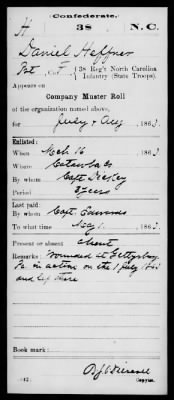 Confederate.
H 38 N.C.
Daniel Heffner
Pvt, Co. F, 38 Reg't North Carolina
Infantry (State Troops).
Appears on
Company Muster Roll
of the organization named above,
for July & Aug, 1863.
Enlisted:
When Mch 16, 1863.
Where Catawba Co
By whom Capt
Period 3 years
Last paid:
By whom Capt.
To what time May 1, 1863.
Present or absent Absent
Remarks: Wounded at Gettysburg
Pa in action on the 1 July 1863
and left there
Book mark:
(642) Copyist.